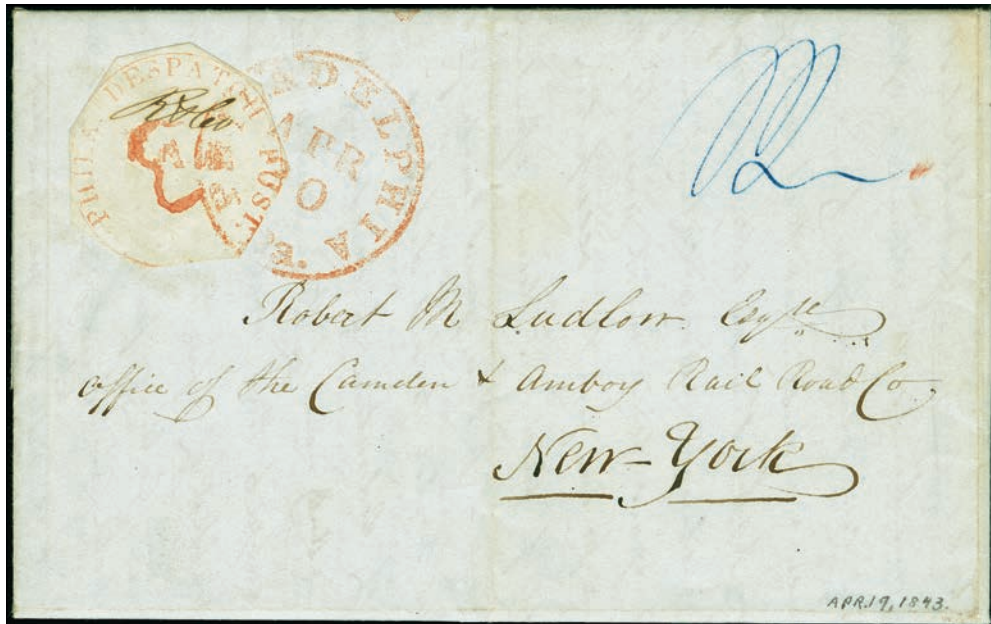 PHILA DESPATCH POST.
R & Co
PHILADELPHIA
APR
Robert M Ludlow Esqre
office of the Camden & Amboy Rail Road Co
New-York
APR.19, 1843.